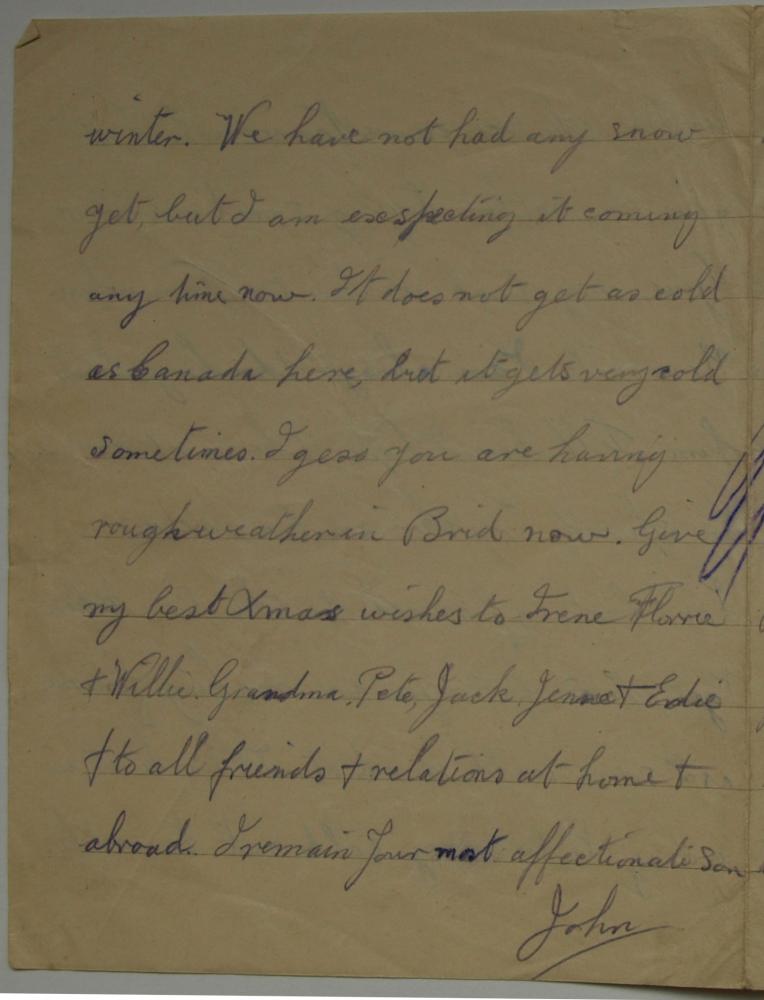 winter. We have not had any snow
yet, but I am exspecting it coming
any time now. It does not get as cold
as Canada here, but it gets very cold
sometimes. I gess you are having
rough weather in Brid now. Give
my best Xmas wishes to Irene Florrie
+ Willie. Grandma, Pete, Jack, Jennie + Erdie
+ to all friends + relations at home +
abroad. I remain Your most affectionate Son
John